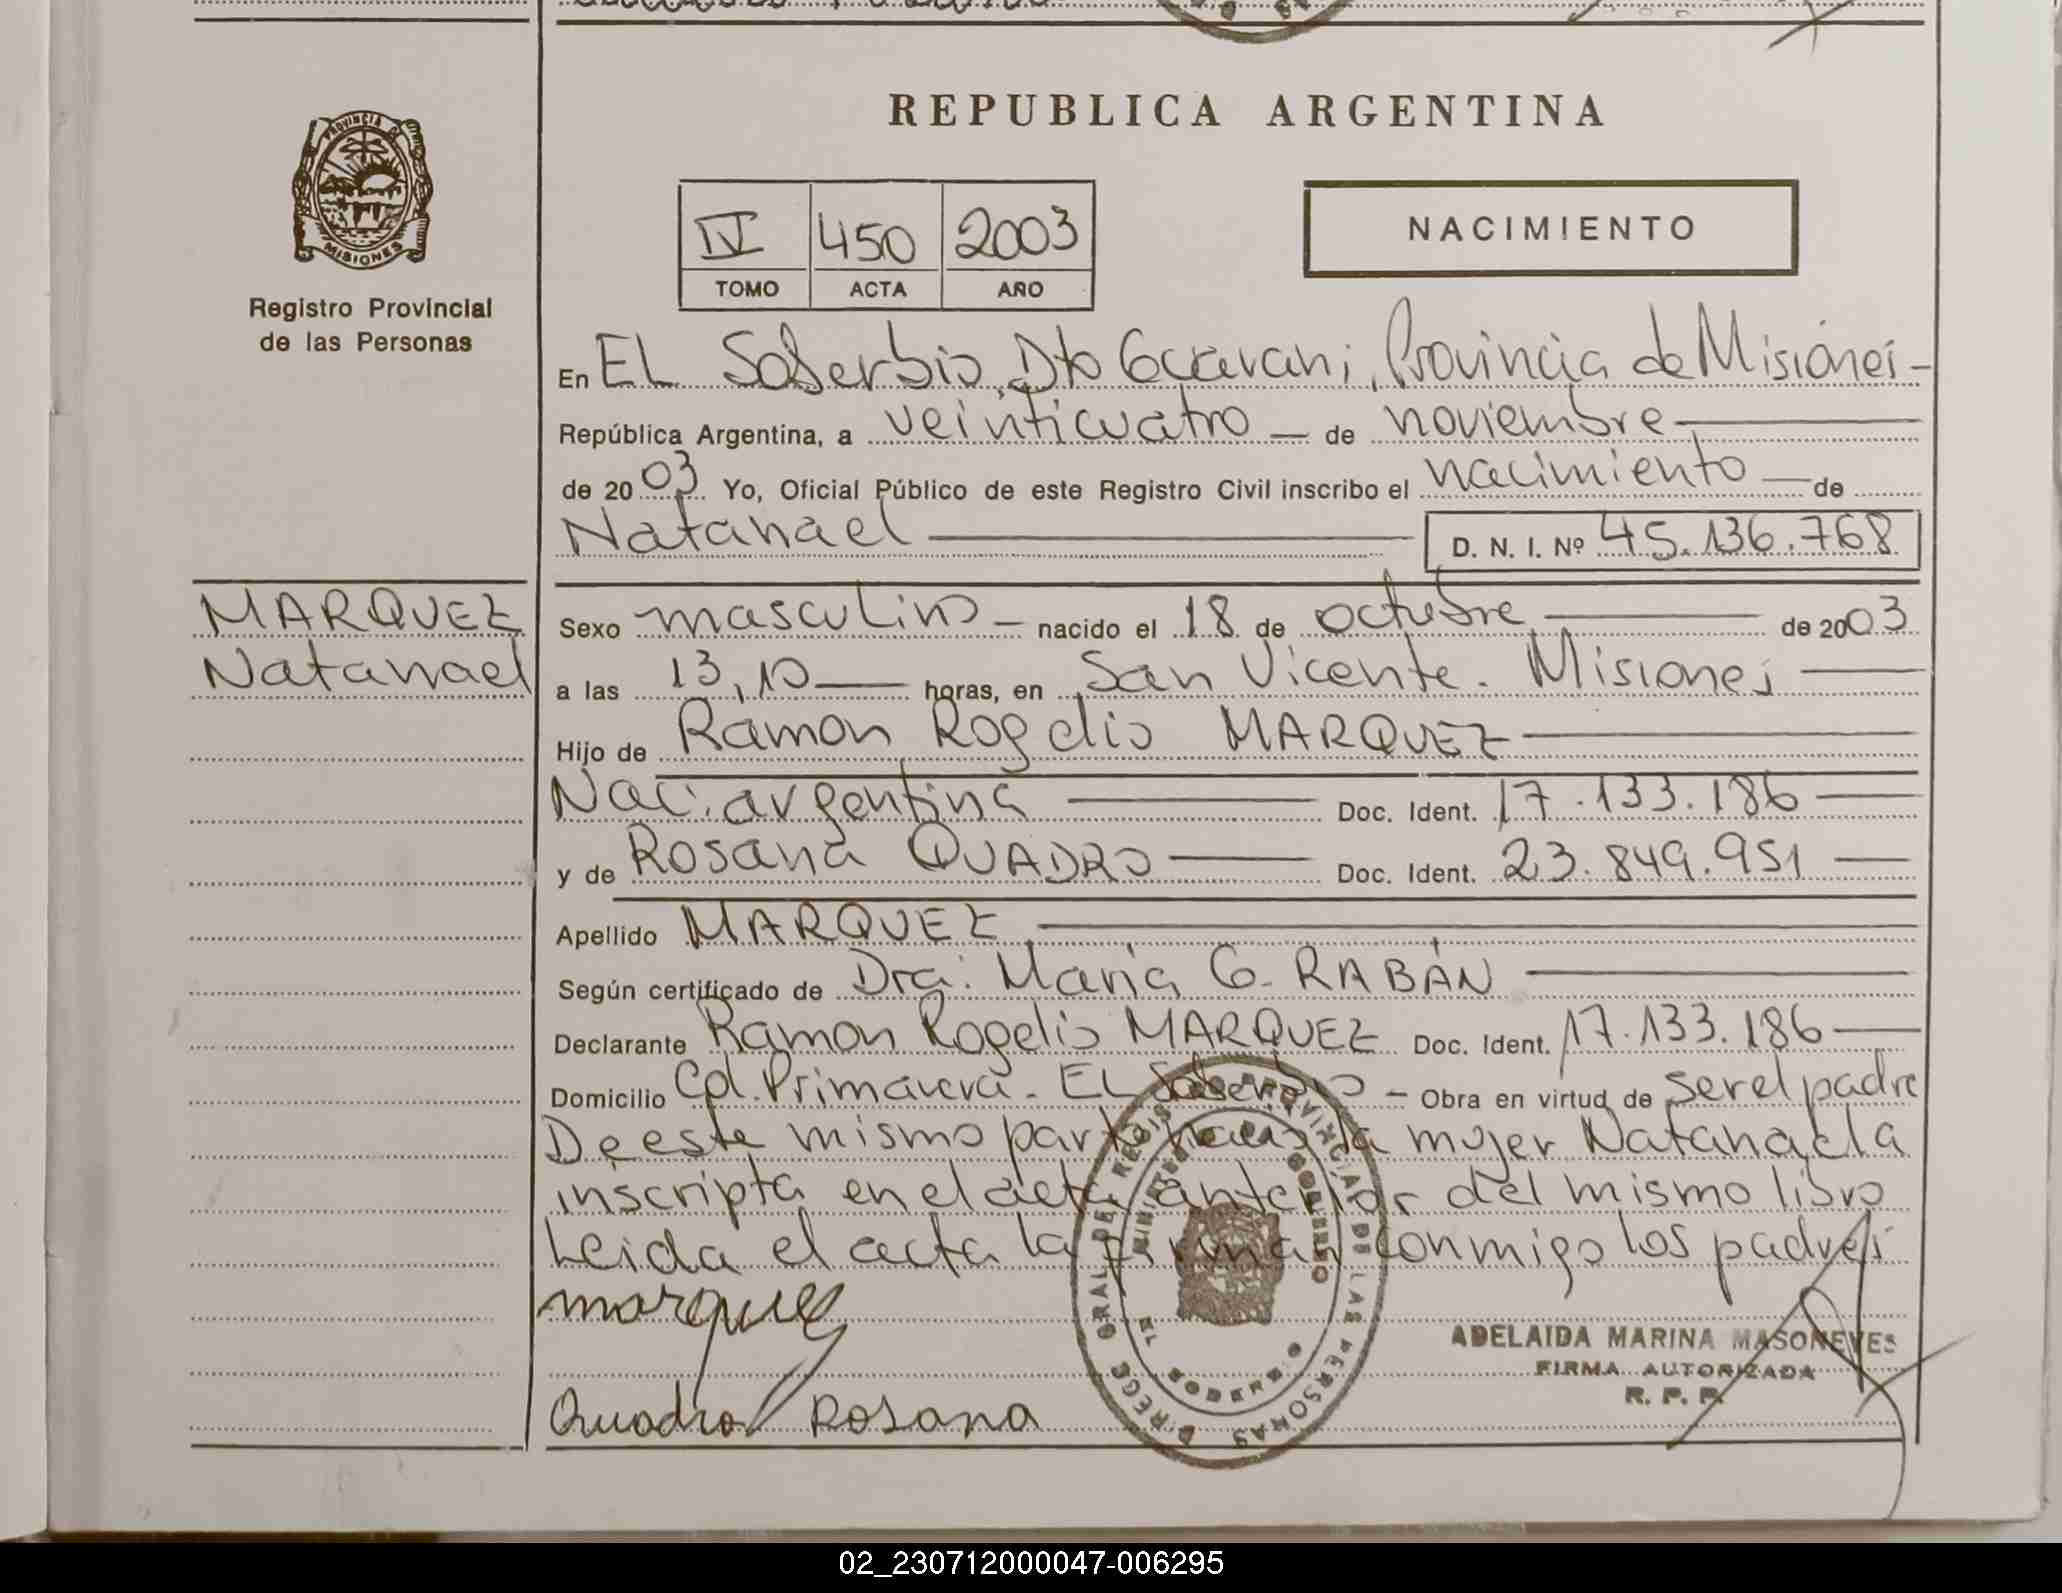 REPUBLICA ARGENTINA
PROVINCIA DE
MISIONES
Registro Provincial
de las Personas
IV 450 2003
TOMO ACTA AÑO
NACIMIENTO
En EL Soberbio, Dto Guarani, Provincia de Misiones -
República Argentina, a veinticuatro — de noviembre
de 2003 Yo, Oficial Público de este Registro Civil inscribo el nacimiento — de
Natanael D. N. I. Nº 45.136.768
MARQUEZ
Natanael
Sexo masculino - nacido el 18 de octubre de 2003
a las 13,10 — horas, en San Vicente. Misiones
Hijo de Ramon Rogelio MARQUEZ
Nac. argentina Doc. Ident. 17.133.186
y de Rosana QUADRO Doc. Ident. 23.849.951
Apellido MARQUEZ
Según certificado de Dra. Maria G. RABÁN
Declarante Ramon Rogelio MARQUEZ Doc. Ident. 17.133.186
Domicilio Col. Primavera - EL Soberbio - Obra en virtud de ser el padre
De este mismo parto nacio la mujer Natanaela
inscripta en el acta anterior del mismo libro
Leida el acta la firman conmigo los padres
marquez
Quadro Rosana
ADELAIDA MARINA MASONEVES
FIRMA AUTORIZADA
R. P. P.
DIREC. GRAL DEL REGIS. PROVINCIAL DE LAS PERSONAS
MINISTERIO GOBIERNO
EL SOBERBIO
02_230712000047-006295